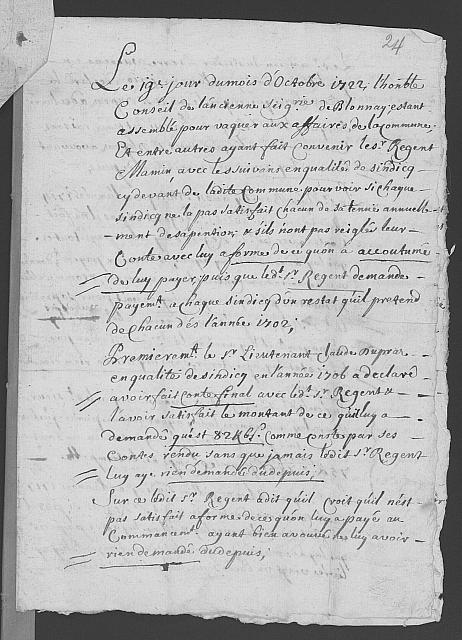 24
Le 19e jour du mois d'Octobre 1722, l'honble
Conseil de lancienne Seigrie de Blonnay; estant
assemblé pour vaquer aux affaires de la commune,
Et entre autres ayant fait convenir le sr. Regent
Mamin avec les suivans en qualité de sindicq
cy devant de ladite Commune pour voir si chaque
sindicq ne la pas satisfait chacun de sa tenue annuelle-
ment de sa pention, & s'ils n'ont pas reiglés leur
Conte avec luy a forme de ce qu'on a accoutumé
de luy payer, puis que led.t Sr. Regent demande
payent. a chaque sindicq d'un restat qu'il pretend
de chacun dés l'année 1702;
Premierent. le Sr. Lieutenant Claude Dupraz
en qualité de sindicq en l'année 1706 a declaré
avoir fait conte final avec led.t Sr. Regent &
l'avoir satisfait le montant de ce quil luy a
demandé qu'est 82 ff 6 s. Comme conste par ses
Contes, rendu sans que jamais ledit Sr. Regent
luy aye rien demandé du depuis;
Sur ce ledit Sr. Regent a dit qu'il croit qu'il n'est
pas satisfait a forme de ce qu'on luy a payé au
Commancemt. ayant bien avoué ne luy avoir
rien demandé du depuis;